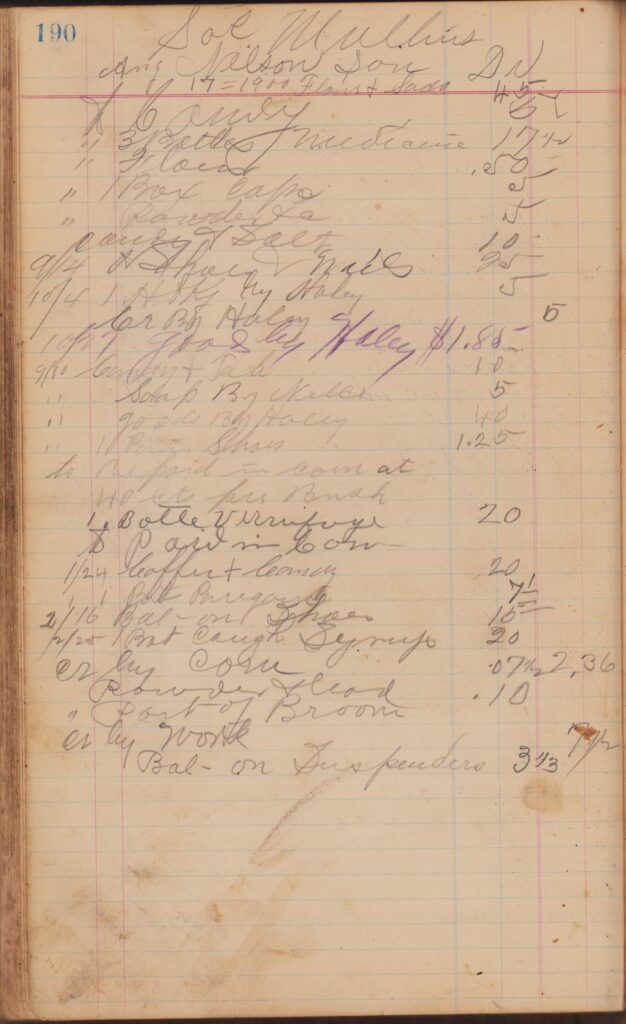 190
Sol Mullins
Nelson Son Dr
Aug 17=1900 Flour & Soda 45
Candy 5
" 3 Bottles Medicine 17 1/2
" Flour .50
" 1 Box Caps 5
" Powder &c 5
Candy & Salt 10
9/4 Shoe Nails 25
10/4 1 By Haley 5
Cr By Haley 5
10/27 goods by Haley $1.85
9/10 Candy + 10
" Soap By Nelse 5
" goods By Haley 40
" 1 Pair Shoes 1.25
to Be paid in corn at
40 cts per Bush
1 Botte Vermifuge 20
Paid in Corn
1/24 Coffee + Candy 20
" 1 Bot Paregoric 7 1/2
2/16 Bal- on Shoes 15
2/25 1 Bot Caugh Syrup 20
Cr by Corn .07 1/2 2.36
Powder & Lead .10
" Part of Broom
Cr by Work 7 1/2
Bal- on Suspenders 3 1/3